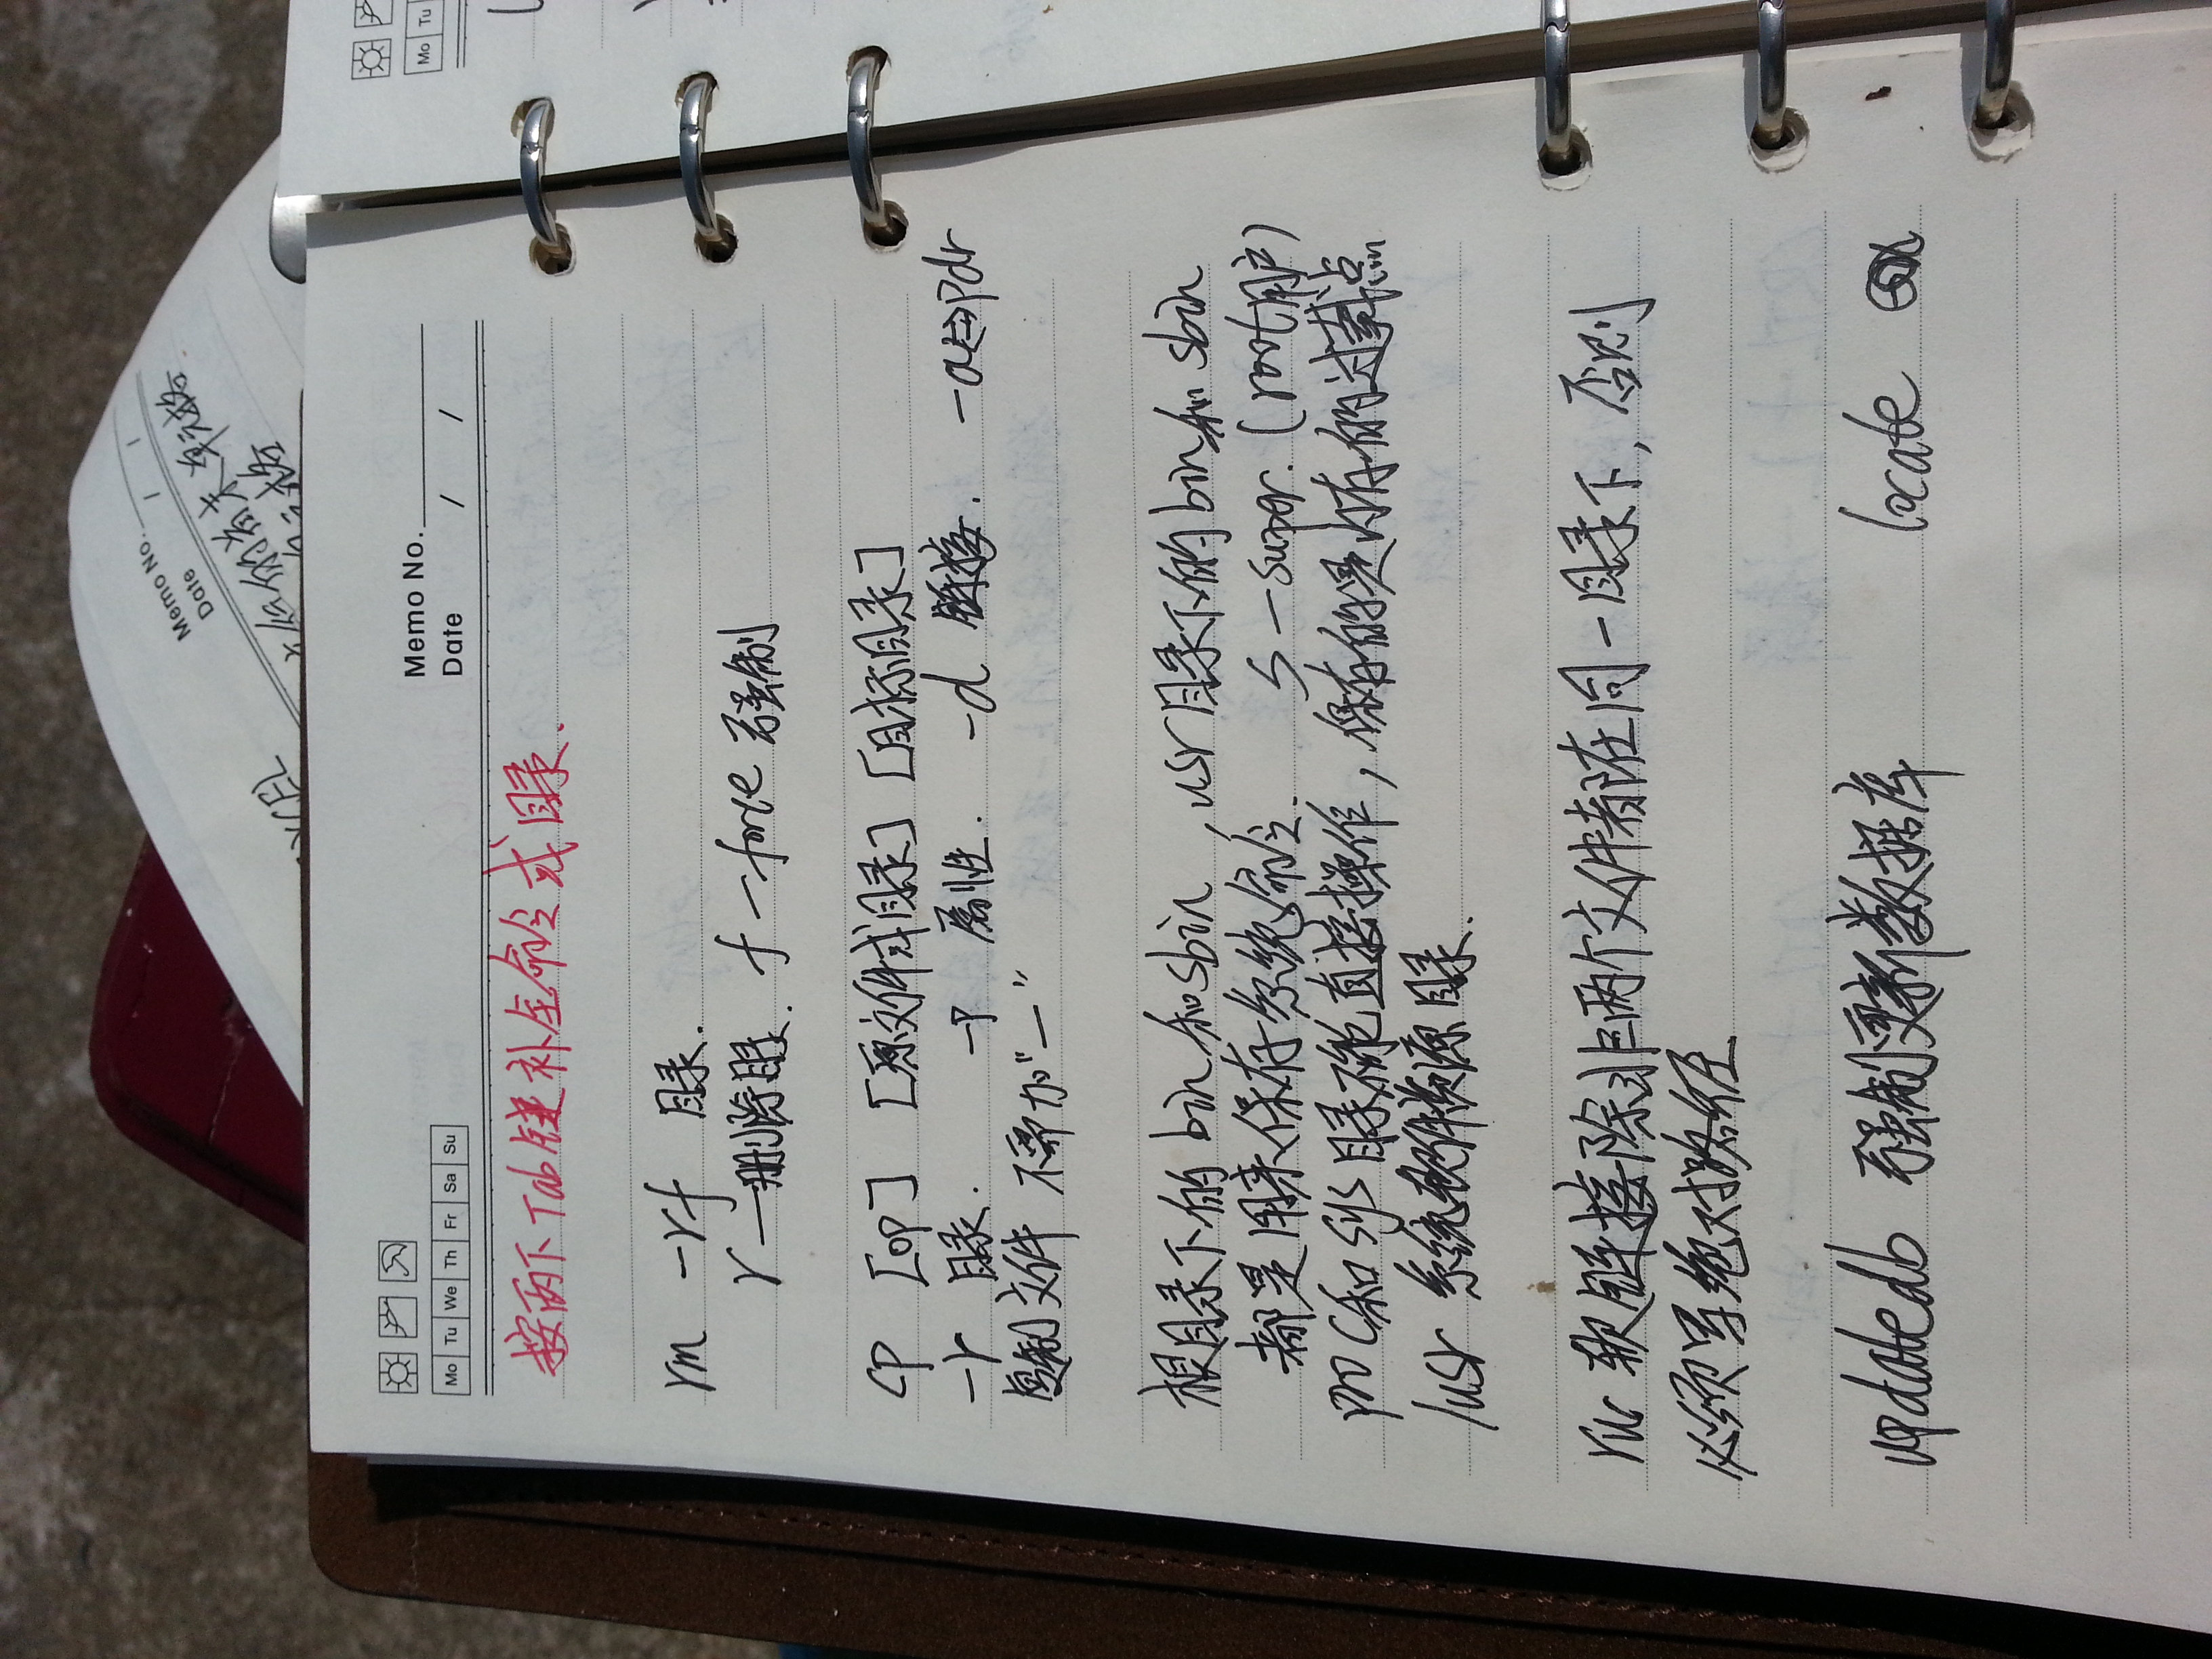 Memo No.
Date / /
EXCEL
的首末单元格
Mo Tu We Th Fr Sa Su
Memo No.
Date / /
Mo Tu
按两下Tab键补全命令或目录.
rm -rf 目录.
r—删除目录. f—force 强制
cp [op] [原文件或目录] [目标目录]
-r 目录. -p 属性. -d 链接. -a⇔pdr
复制文件 不需加"—"
根目录下的bin和sbin,usr目录下的bin和sbin
都是用来保存系统命令. s—super.(root用户)
proc和sys目录不能直接操作,保存的是内存的过载点
/usr 系统软件资源目录.
软链接除非两个文件都在同一目录下,否则
必须写绝对路径
updatedb 强制更新数据库 locate